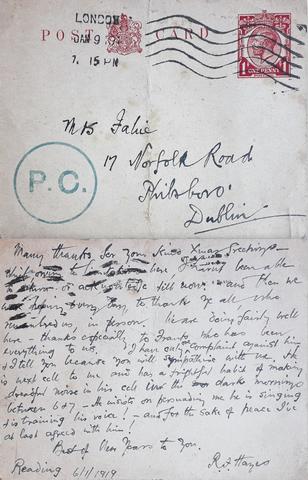 LONDON
JAN 9
7. 15 PM
POST CARD
ONE PENNY
Mrs Fahie
17 Norfolk Road
Philsboro'
Dublin
P.C.
Many thanks for your kind Xmas Greetings —
here I haven't been able
to or acknowledge it till now. and then we
hoping every day, to thank you all who
remembered us, in person. We are doing fairly well
here — thanks especially to Frank who has been
everything to us. I have only one complaint against him
& I tell you because you will sympathise with me. He
is next cell to me and has a frightful habit of making
a dreadful noise in his cell in the dark mornings
between 6 & 7 — He insists on persuading me he is singing
& is training his voice! — and for the sake of peace I've
at last agreed with him!
Best of New Years to you.
R. F. Hayes
Reading 6/1/1919